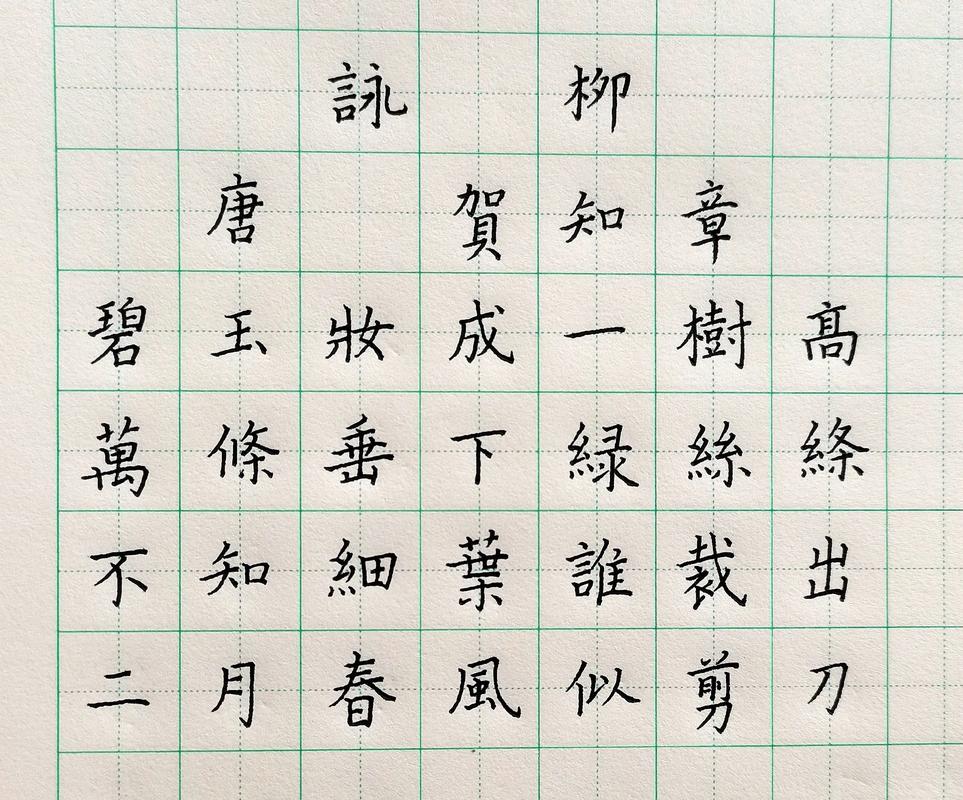 詠柳
唐 賀知章
碧玉妝成一樹髙
萬條垂下緑絲絛
不知細葉誰裁出
二月春風似剪刀